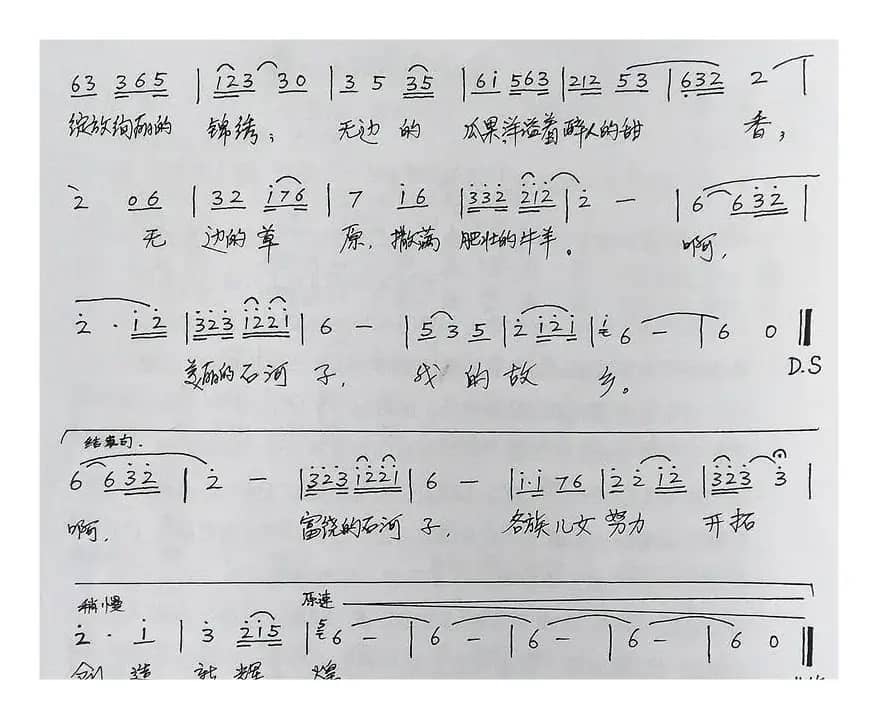 63 365 | i23 30 | 3 5 35 | 6i 563 | 212 53 | 632 2 |
绽放绚丽的 锦绣; 无边 的 瓜果洋溢着醉人的甜 香,
2 06 | 32 i76 | 7 i6 | 332 212 | 2 — | 6 632 |
无 边的草 原, 撒满 肥壮的牛羊。 啊,
2 · i2 | 323 i22i | 6 — | 5 3 5 | 2 i2i | 6 — | 6 0 ‖
D.S
美丽的石河 子, 我 的 故 乡。
结束句.
6 632 | 2 — | 323 i22i | 6 — | i·i 76 | 2 2 i2 | 323 3 |
啊, 富饶的石河 子, 各族儿女 努力 开拓
稍慢 原速
2 · i | 3 2i5 | 6 — | 6 — | 6 — | 6 — | 6 0 ‖
创 造 新 辉 煌